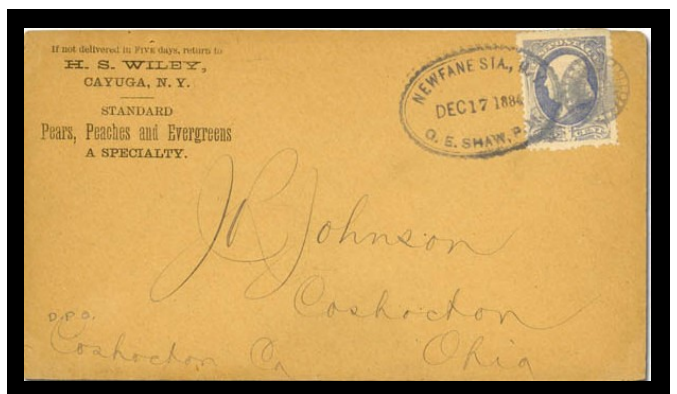 If not delivered in FIVE days, return to
H. S. WILEY,
CAYUGA, N. Y.
STANDARD
Pears, Peaches and Evergreens
A SPECIALTY.
NEWFANE STA., N.Y.
DEC 17 1884
O. E. SHAW, P.M.
J R Johnson
Coshocton
D.P.O.
Coshocton Co Ohio